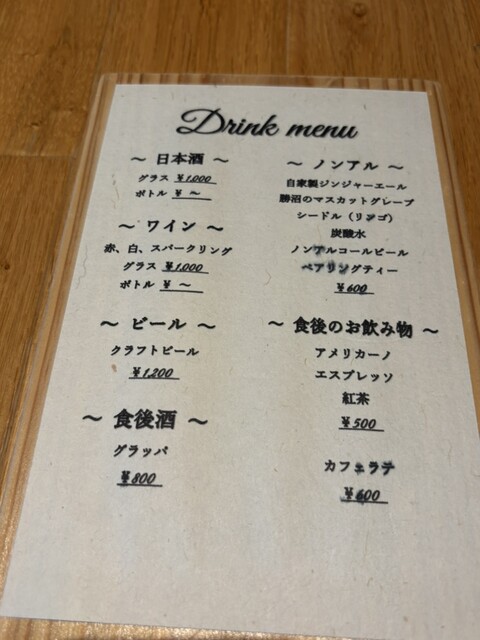 Drink menu
～ 日本酒 ～
グラス ¥1,000
ボトル ¥ ～
～ ワイン ～
赤、白、スパークリング
グラス ¥1,000
ボトル ¥ ～
～ ビール ～
クラフトビール
¥1,200
～ 食後酒 ～
グラッパ
¥800
～ ノンアル ～
自家製ジンジャーエール
勝沼のマスカットグレープ
シードル（リンゴ）
炭酸水
ノンアルコールビール
ペアリングティー
¥600
～ 食後のお飲み物 ～
アメリカーノ
エスプレッソ
紅茶
¥500
カフェラテ
¥600